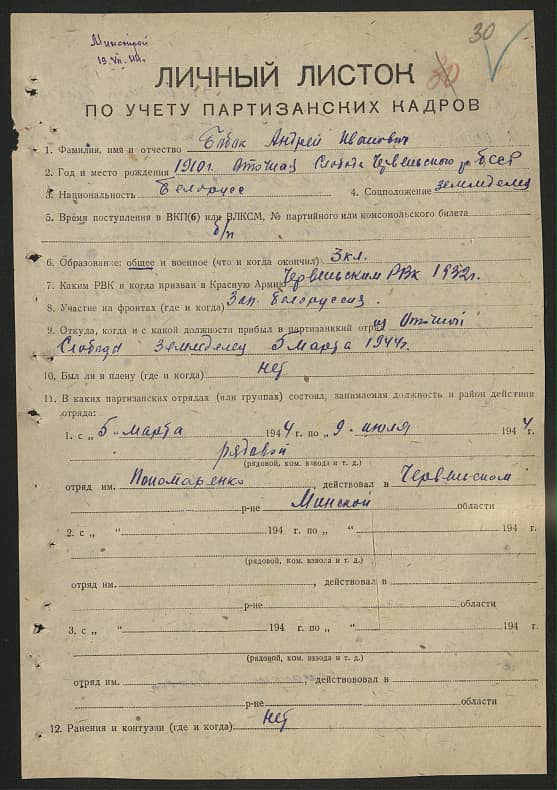 30
19.VII.44г.
30
ЛИЧНЫЙ ЛИСТОК
ПО УЧЕТУ ПАРТИЗАНСКИХ КАДРОВ
1. Фамилия, имя и отчество Бабак Андрей Иванович
2. Год и место рождения 1910г. Слобода Червеньского р. БССР
3. Национальность Белорусс 4. Соцположение земледелец
5. Время поступления в ВКП(б) или ВЛКСМ, № партийного или комсомольского билета
б/п
6. Образование: общее и военное (что и когда окончил) 3 кл.
7. Каким РВК и когда призван в Красную Армию Червеньским РВК 1932г.
8. Участие на фронтах (где и когда) Зап. Белоруссия.
9. Откуда, когда и с какой должности прибыл в партизанкий отряд из
Слобода земледелец 5 марта 1944г.
10. Был ли в плену (где и когда) нет
11. В каких партизанских отрядах (или группах) состоял, занимаемая должность и район действия
отряда:
1. с „ 5 „ марта 194 4 г. по „ 9 „ июля 194 4 г.
рядовой
(рядовой, ком. взвода и т. д.)
отряд им. Пономаренко, действовал в Червеньском
р-не Минской области
2. с „ “ 194 г. по „ “ 194 г.
(рядовой, ком. взвода и т. д.)
отряд им. , действовал в
р-не области
3. с „ “ 194 г. по „ “ 194 г.
(рядовой, ком. взвода и т. д.)
отряд им. , действововал в
р-не области
12. Ранения и контузии (где и когда) нет